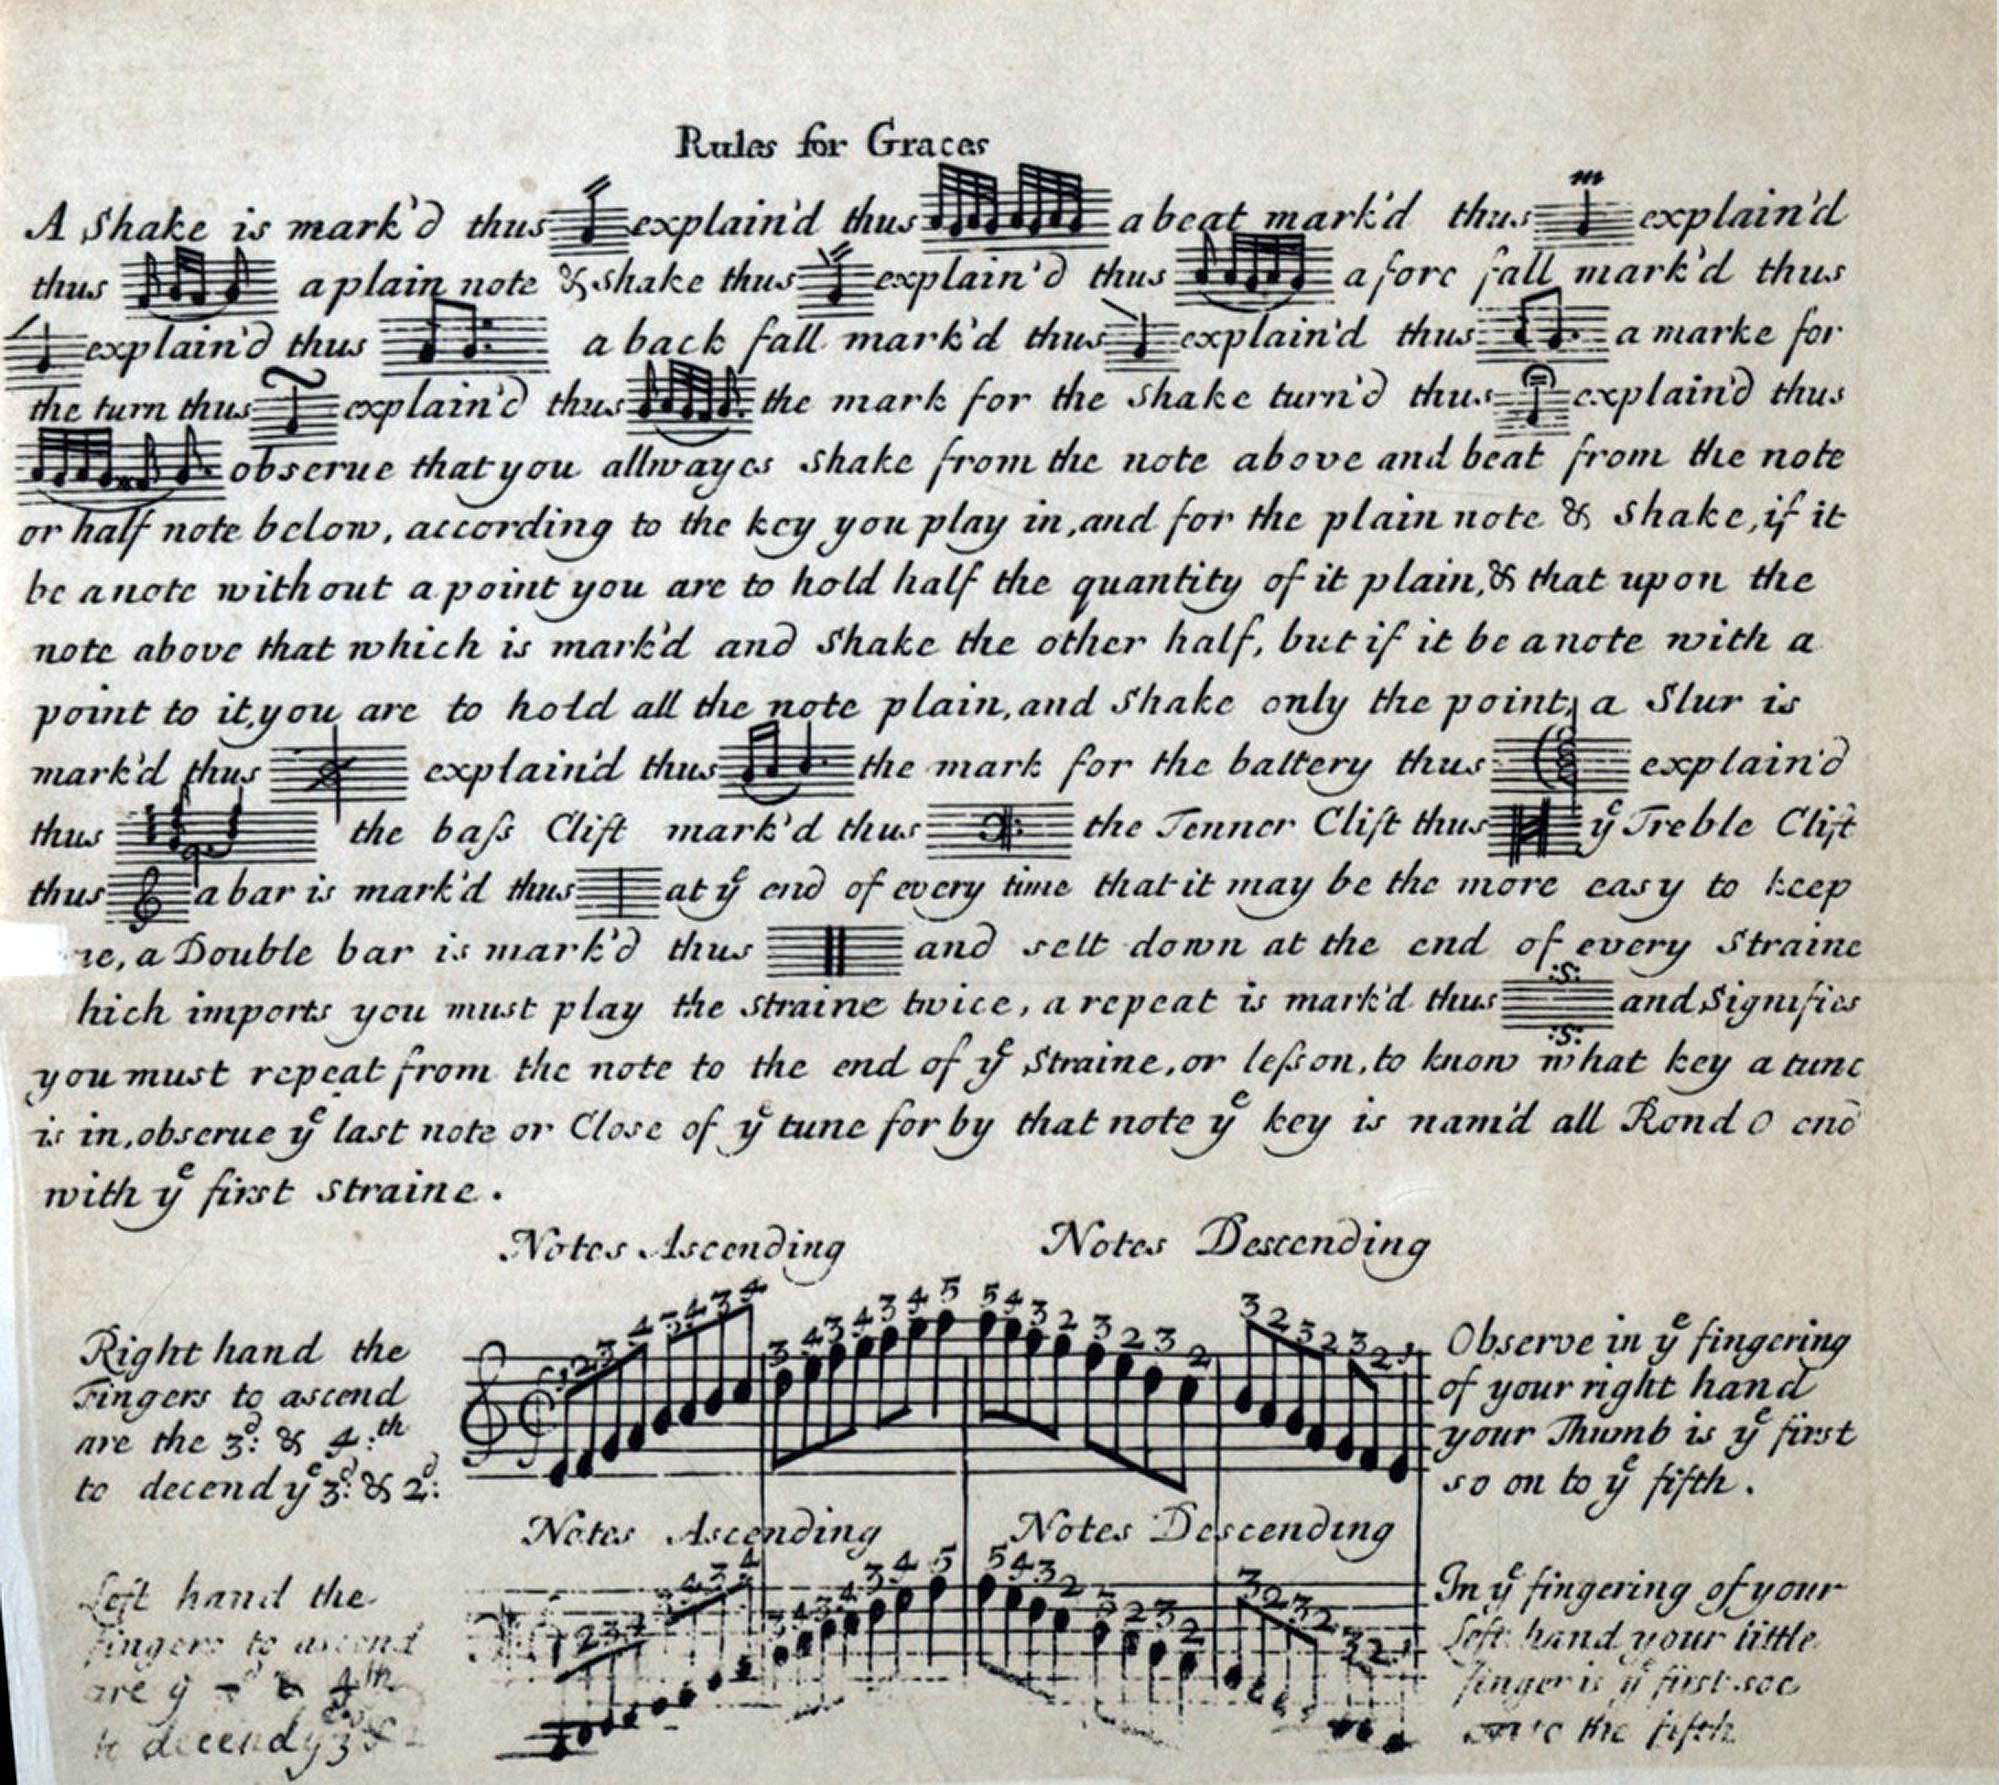 Rules for Graces
A Shake is mark'd thus explain'd thus a beat mark'd thus explain'd
thus a plain note & shake thus explain'd thus a fore fall mark'd thus
explain'd thus a back fall mark'd thus explain'd thus a marke for
the turn thus explain'd thus the mark for the shake turn'd thus explain'd thus
observe that you allwayes shake from the note above and beat from the note
or half note below, according to the key you play in, and for the plain note & shake, if it
be a note without a point you are to hold half the quantity of it plain, & that upon the
note above that which is mark'd and Shake the other half, but if it be a note with a
point to it, you are to hold all the note plain, and Shake only the point, a Slur is
mark'd thus explain'd thus the mark for the battery thus explain'd
thus the baſs Clift mark'd thus the Tenner Clift thus yͤ Treble Clift
thus a bar is mark'd thus at yͤ end of every time that it may be the more easy to keep
, a Double bar is mark'd thus and sett down at the end of every Straine
hich imports you must play the straine twice, a repeat is mark'd thus :S: and Signifies
:S:
you must repeat from the note to the end of yͤ Straine, or leſson, to know what key a tune
is in, observe yͤ last note or Close of yͤ tune for by that note yͤ key is nam'd all Rond O end
with yͤ first straine.
Notes Ascending Notes Descending
Right hand the
Fingers to ascend
are the 3ᵈ: & 4:ᵗʰ
to decend yͤ 3ᵈ: & 2ᵈ:
1 2 3 4 3 4 3 4 3 4 3 4 3 4 5 5 4 3 2 3 2 3 2 3 2 3 2 3 2 1
Observe in yͤ fingering
of your right hand
your Thumb is yͤ first
so on to yͤ fifth.
Notes Ascending Notes Descending
Left hand the
fingers to ascend
are yͤ 4ᵗʰ
to decend yͤ 3
2 3 4 3 4 3 4 3 4 3 4 3 4 5 5 4 3 2 3 2 3 2 3 2 3 2 3 2 1
In yͤ fingering of your
Left hand your little
finger is yͤ first soe
the fifth